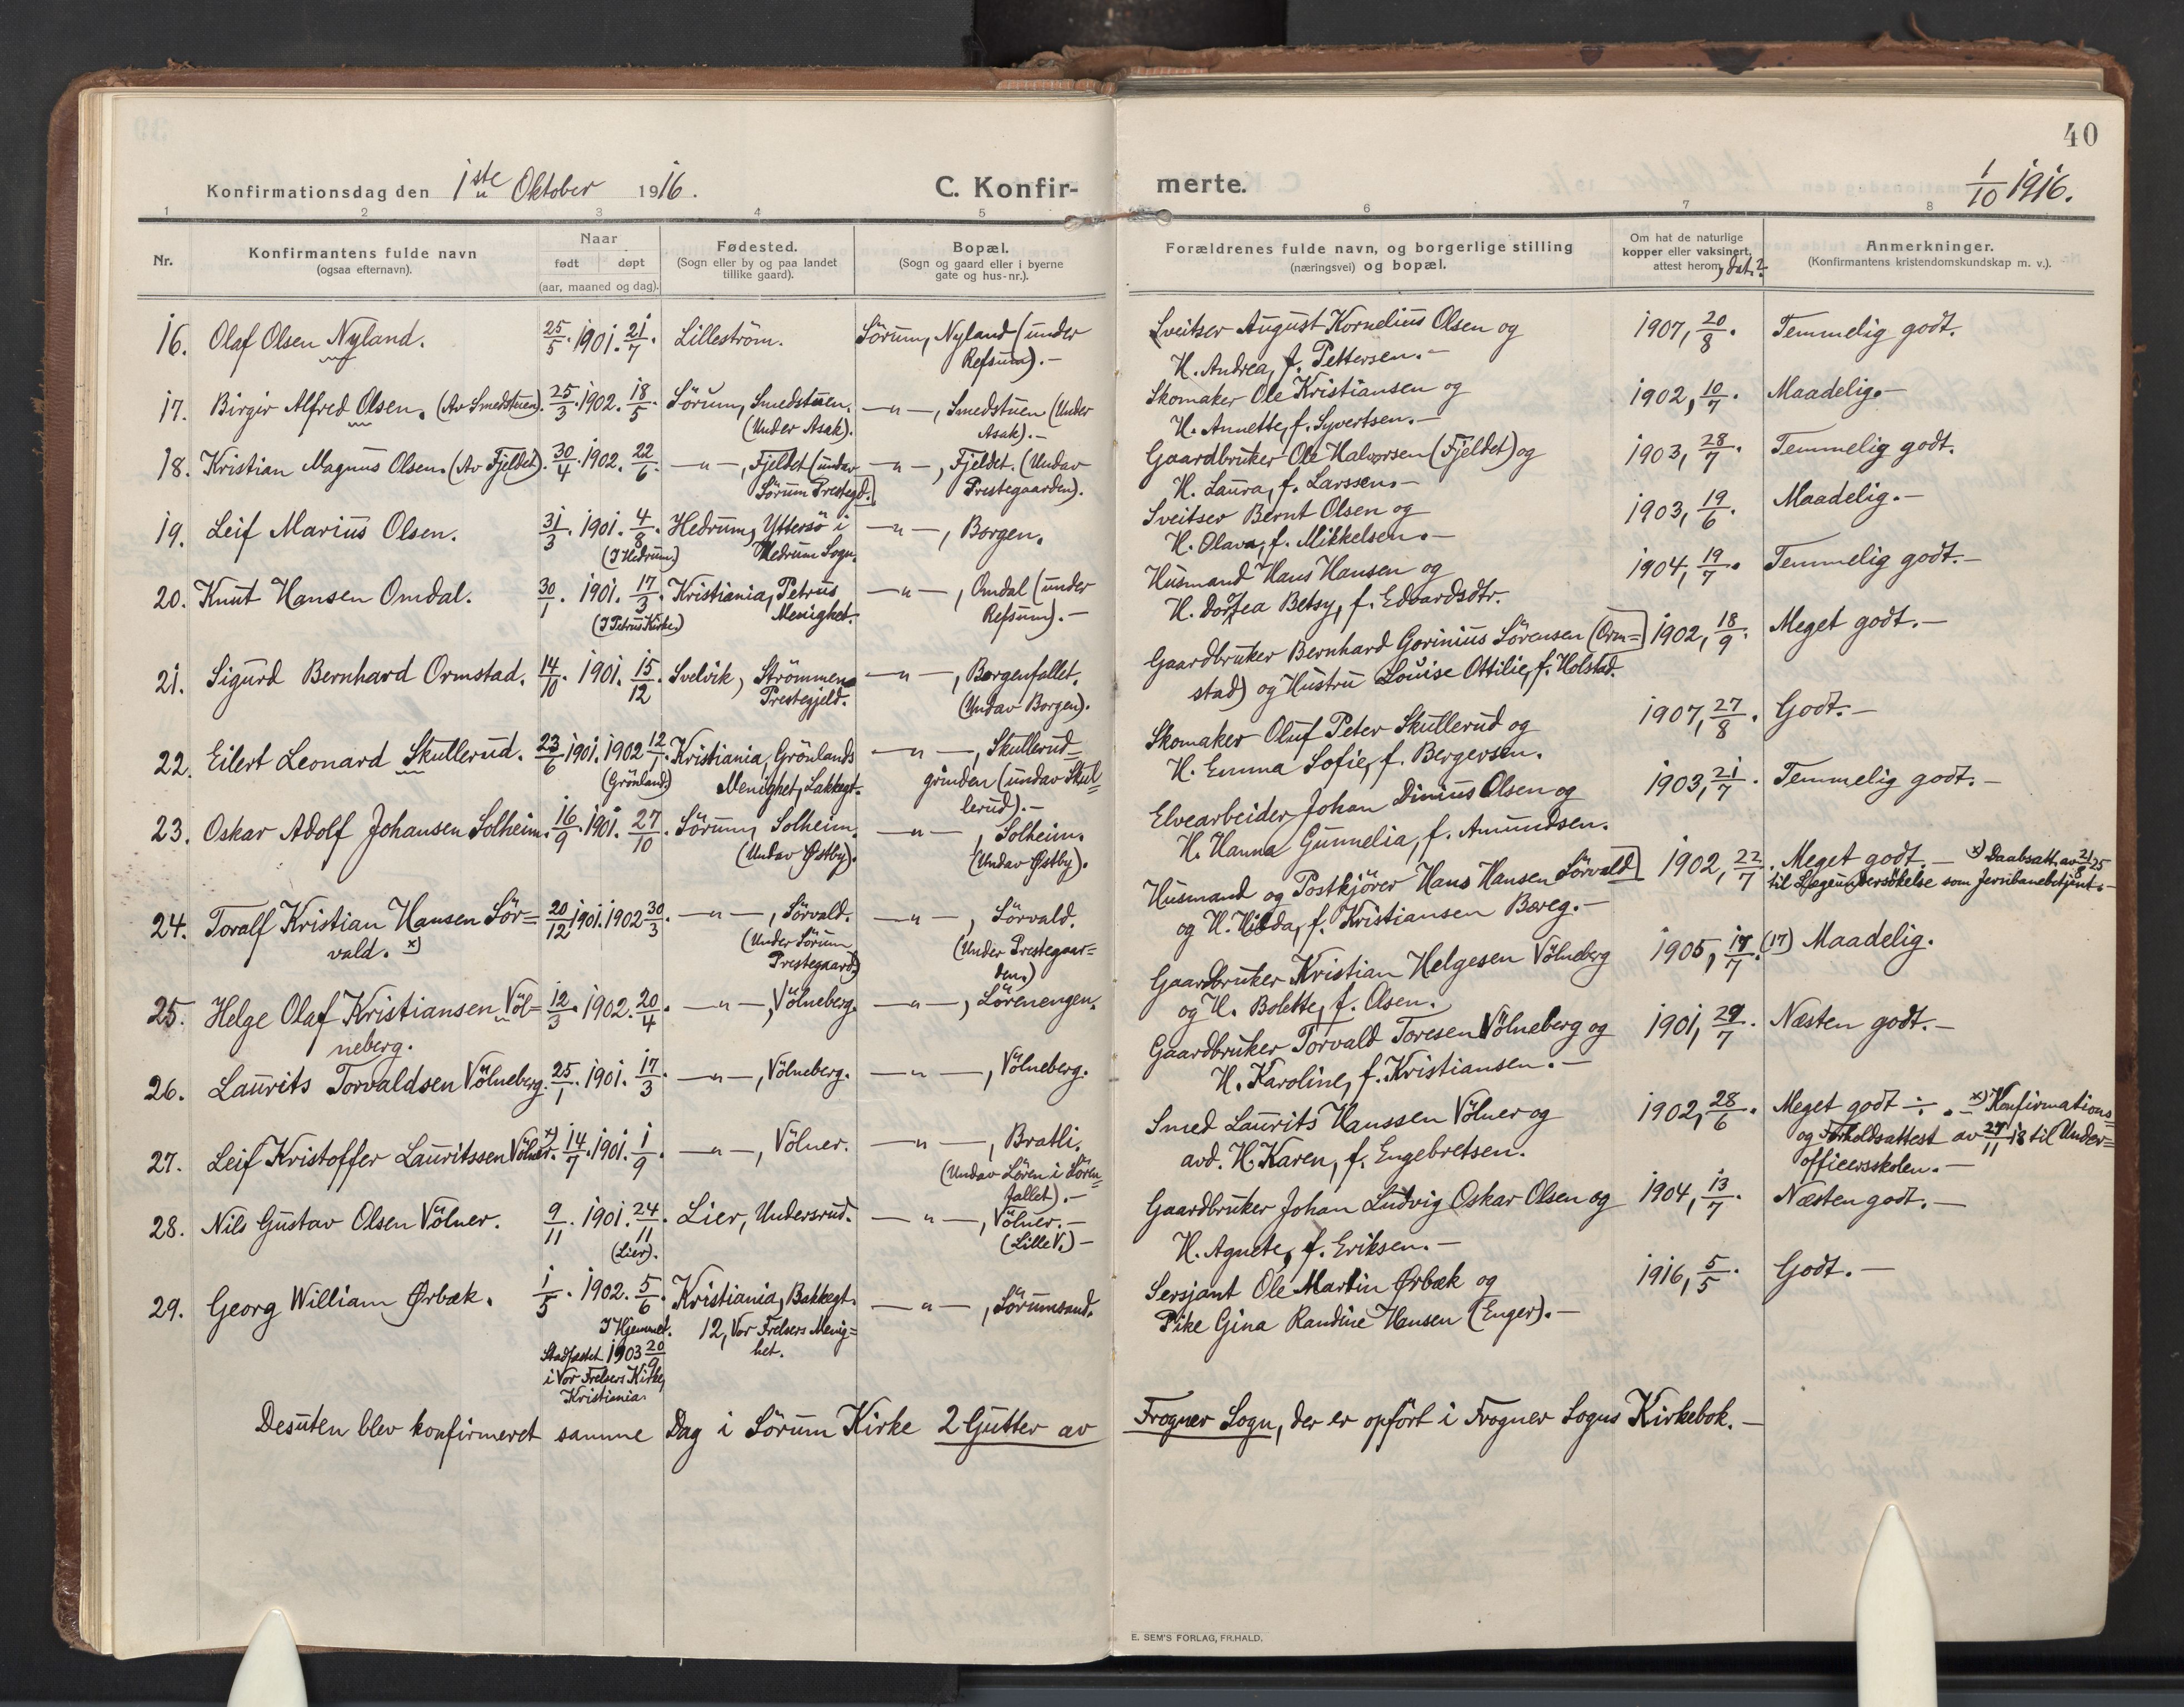 40
Konfirmationsdag den 1ste Oktober 1916. C. Konfir-
merte. 1/10 1916.
1 2 3 4 5 6 7 8
Nr.
Konfirmantens fulde navn
(ogsaa efternavn).
Naar
født døpt
(aar, maaned og dag).
Fødested.
(Sogn eller by og paa landet
tillike gaard).
Bopæl.
(Sogn og gaard eller i byerne
gate og hus-nr.).
Forældrenes fulde navn, og borgerlige stilling
(næringsvei) og bopæl.
Om hat de naturlige
kopper eller vaksinert,
attest herom, dat.?
Anmerkninger.
(Konfirmantens kristendomskundskap m. v.).
16. Olaf Olsen Nyland. 25/5. 1901. 21/7. Lilleström. Sörum, Nyland (under
Refsum).-
Sveitser August Kornelius Olsen og 1907, 20/8. Temmelig godt.
H. Andrea, f. Pettersen.-
17. Birgir Alfred Olsen. (Av Smedstuen). 25/3. 1902. 18/5. Sörum, Smedstuen. -"-, Smedstuen (Under
(Under Asak). Asak).-
Skomaker Ole Kristiansen og 1902, 10/7. Maadelig.-
H. Annette, f. Syvertsen.-
18. Kristian Magnus Olsen. (Av Fjeldet). 30/4. 1902. 22/6. -"-, Fjeldet (undav -"-, Fjeldet. (Undav
Sörum Prestegd.) Prestegaarden).
Gaardbruker Ole Halvorsen (Fjeldet) og 1903, 28/7. Temmelig godt.
H. Laura, f. Larssen.-
19. Leif Marius Olsen. 31/3. 1901. 4/8. Hedrum, Yttersö i -"-, Borgen.
(I Hedrum.) Hedrum Sogn.
Sveitser Bernt Olsen og 1903, 19/6. Maadelig.-
H. Olava, f. Mikkelsen.-
20. Knut Hansen Omdal. 30/1. 1901. 17/3. Kristiania, Petrus -"-, Omdal (under
(I Petrus Kirke.) Menighet. Refsum).-
Husmand Hans Hansen og 1904, 19/7. Temmelig godt.-
H. Dortea Betsy, f. Edvardsdtr.
21. Sigurd Bernhard Ormstad. 14/10. 1901. 15/12. Svelvik, Strömmens -"-, Borgenfallet.
Prestegjeld. (Undav Borgen).
Gaardbruker Bernhard Gorinius Sörensen (Orm= 1902, 18/9. Meget godt.-
stad) og Hustru Louise Ottilie, f. Holstad.
22. Eilert Leonard Skullerud. 23/6 1901. 1902 12/1. Kristiania, Grönlands -"-, Skullerud-
(Grönland.) Menighet, Lakkegt. grinden (undav Skul
lerud).-
Skomaker Oluf Peter Skullerud og 1907, 27/8. Godt.-
H. Emma Sofie, f. Bergersen.
23. Oskar Adolf Johansen Solheim. 16/9. 1901. 27/10. Sörum, Solheim. -"-, Solheim.
(Undav Østby). (Undav Østby).
Elvearbeider Johan Dinius Olsen og 1903, 21/7. Temmelig godt.-
H. Hanna Gunnelia, f. Amundsen.
24. Toralf Kristian Hansen Sör= 20/12 1901. 1902 30/3 -"-, Sörvald. -"-, Sörvald.
vald. x) (Under Sörum Prestegaard) (Under Prestegaar=
den.)
Husmand og Postkjörer Hans Hansen Sörvald 1902, 22/7. Meget godt.- x) Daabsatt. av 21/8 25
og H. Hilda, f. Kristiansen Bereg.- til Lægeundersökelse som Jernbanebetjent.-
25. Helge Olaf Kristiansen Völ= 12/3. 1902. 20/4 -"-, Völneberg. -"-, Lörenengen.
neberg.
Gaardbruker Kristian Helgesen Völneberg 1905, 17/7. (17) Maadelig.
og H. Bolette, f. Olsen.
26. Laurits Torvaldsen Völneberg. 25/1. 1901. 17/3. -"-, Völneberg. -"-, Völneberg.
Gaardbruker Torvald Toresen Völneberg og 1901, 29/7. Næsten godt.-
H. Karoline, f. Kristiansen.-
27. Leif Kristoffer Lauritssen Völner. x) 14/7. 1901. 1/9. -"-, Völner. -"-, Bratli.
(Undav Lören i Lören=
fallet).-
Smed Laurits Hanssen Völner og 1902, 28/6. Meget godt ÷.- x) Konfirmations=
avd. H. Karen, f. Engebretsen. og Forholdsattest av 27/11 18 til Under=
officersskolen.-
28. Nils Gustav Olsen Völner. 9/11. 1901. 24/11. Lier, Undersrud. -"-, Völner.-
(Lier). (Lille V.)-
Gaardbruker Johan Ludvig Oskar Olsen og 1904, 13/7. Næsten godt.-
H. Agnete, f. Eriksen.-
29. Georg William Ørbæk. 1/5. 1902. 5/6. Kristiania, Bakkegt. -"-, Sörumsand.
I Hjemmet. 12, Vor Frelsers Menig=
Stadfæstet 1903 20/9 het.
i Vor Frelsers Kirke,
Kristiania.
Sersjant Ole Martin Ørbæk og 1916, 5/5. Godt.-
Pike Gina Randine Hansen (Enger).-
Desuten blev konfirmeret samme Dag i Sörum Kirke 2 Gutter av Frogner Sogn, der er opfört i Frogner Sogns Kirkebok.-
E. SEM'S FORLAG, FR.HALD.